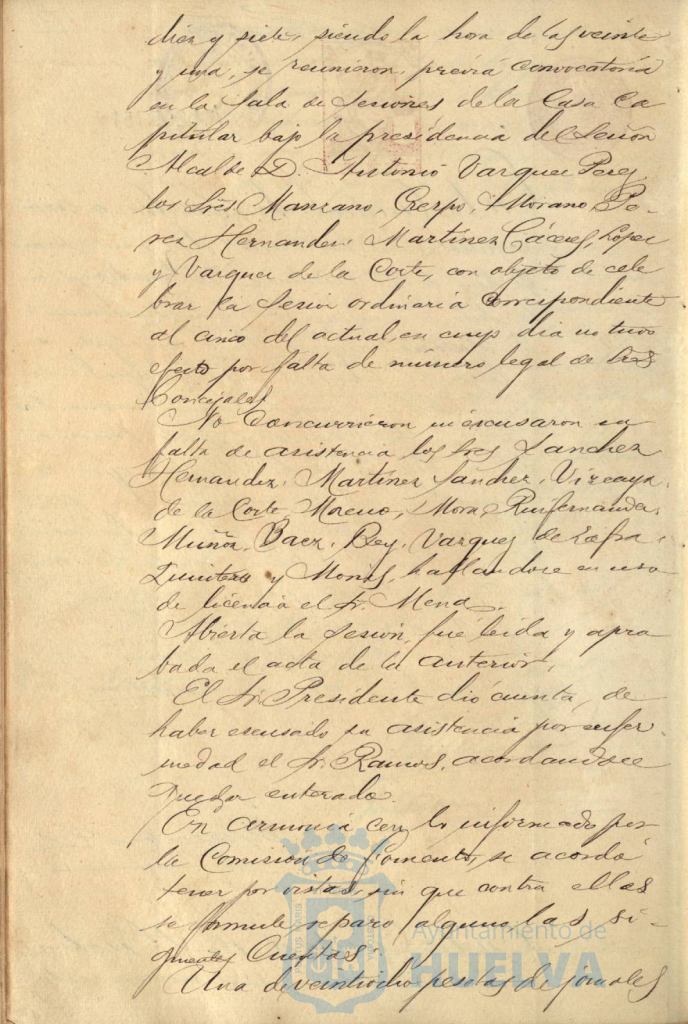 diez y siete, siendo la hora de las veinte
y una, se reunieron, previa convocatoria
en la Sala de Sesiones de la Casa Ca
pitular bajo la presidencia del Señor
Alcalde D. Antonio Vazquez Perez,
los Sres Manzano, Crespo, Morano, Pe-
rez Hernandez, Martinez Cáceres, Lopez
y Vazquez de la Corte, con objeto de cele
brar la Sesion ordinaria correspondiente
al cinco del actual, en cuyo dia no tuvo
efecto por falta de número legal de Sres
Concejales.
No Concurrieron ni escusaron su
falta de asistencia los Sres Sanchez
Hernandez, Martinez Sanchez, Vizcaya,
de la Corte Moreno, Mora, Ruifernandez,
Muñoz, Baez, Rey, Vazquez de Zafra,
Quintero y Monis, hallandose en uso
de licencia el Sr. Mena.
Abierta la Sesion, fue leida y apro
bada el acta de la anterior.
El Sr. Presidente dió cuenta, de
haber escusado su asistencia por enfer
medad el Sr. Ramos, acordandose
quedar enterado.
En armonia con lo informado por
la Comision de Fomento, se acordó
tener por vistas, sin que contra ellas
se formule reparo alguno las si-
guientes Cuentas:
Una de veintiocho pesetas de jornales
Ayuntamiento de
HUELVA